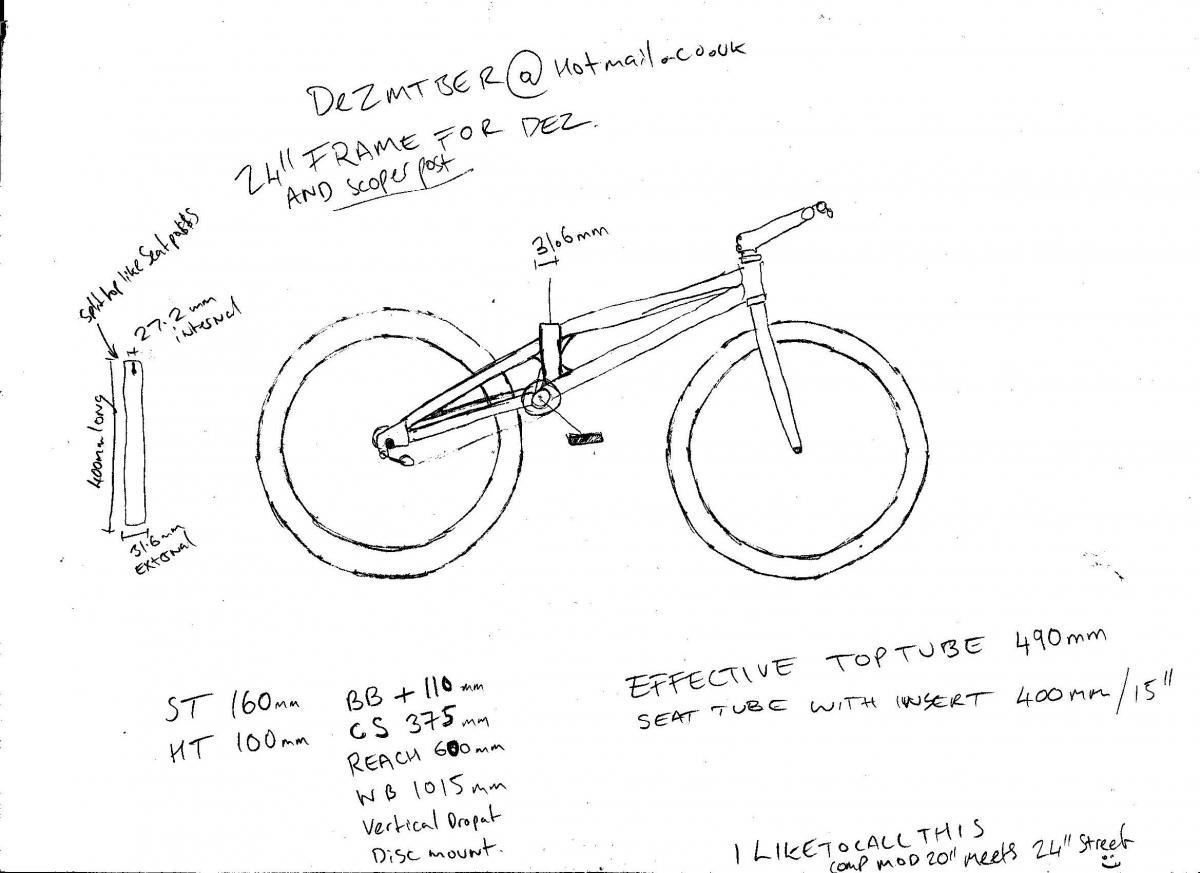 DeZMTBER@Hotmail.co.uk
24" FRAME FOR DEZ.
AND scoper post
31.6mm
Split top like Seat posts
27.2mm
internal
400mm long
31.6mm
EXTERNAL
ST 160mm
HT 100mm
BB + 110mm
CS 375mm
REACH 600mm
WB 1015mm
Vertical Dropat
Disc mount.
EFFECTIVE TOP TUBE 490mm
SEAT TUBE WITH INSERT 400mm/15"
I LIKE TO CALL THIS
COMP MOD 20" MEETS 24" Street